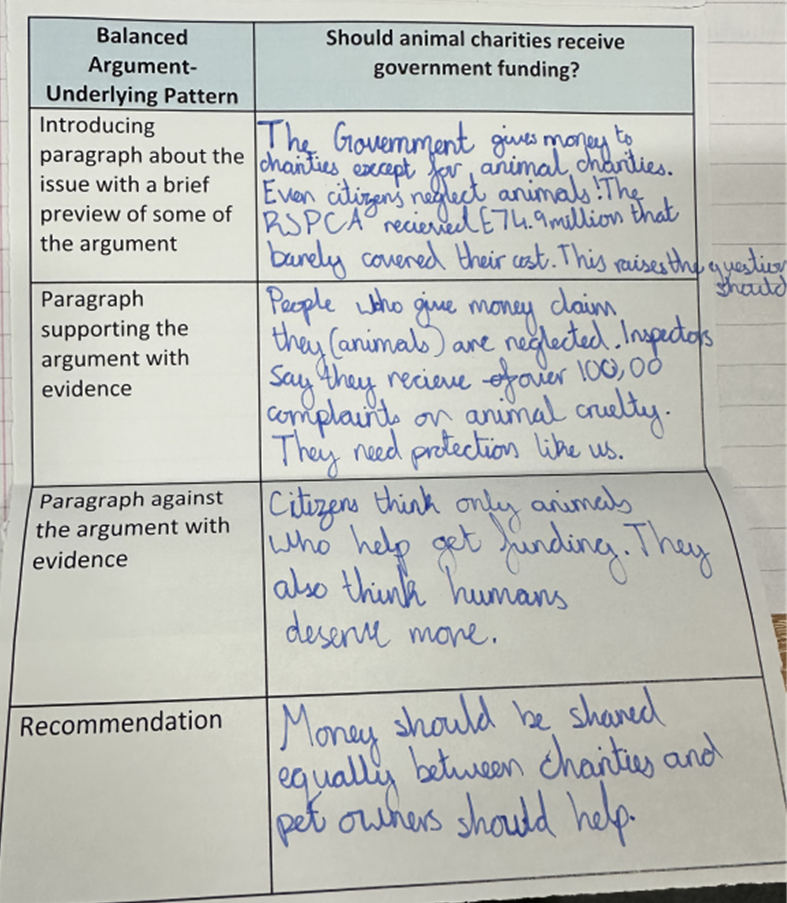 Balanced
Argument-
Underlying Pattern
Should animal charities receive
government funding?
Introducing
paragraph about the
issue with a brief
preview of some of
the argument
The Government gives money to
charities except for animal charities.
Even citizens neglect animals! The
RSPCA recieved £74.9million that
barely covered their cost. This raises the question
should
Paragraph
supporting the
argument with
evidence
People who give money claim
they (animals) are neglected. Inspectors
say they recieve over 100,00
complaints on animal cruelty.
They need protection like us.
Paragraph against
the argument with
evidence
Citizens think only animals
who help get funding. They
also think humans
deserve more.
Recommendation
Money should be shared
equally between charities and
pet owners should help.